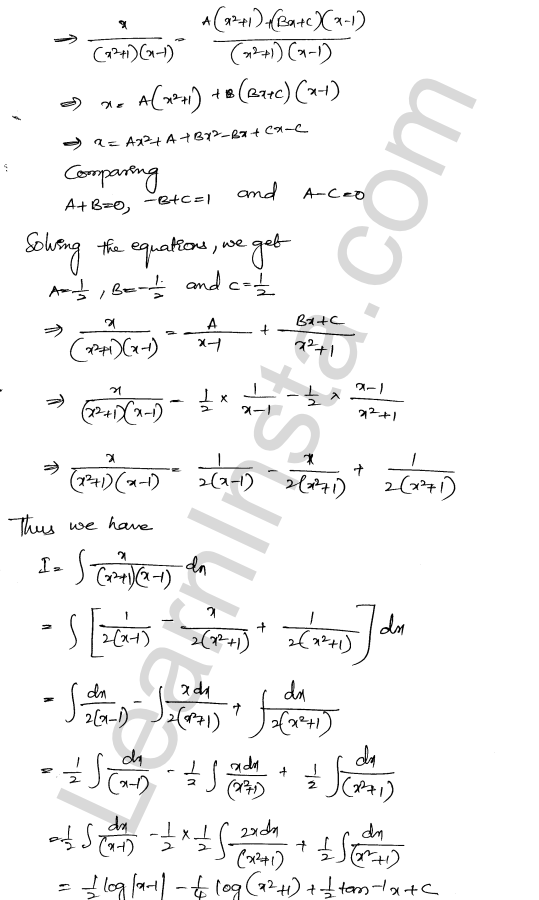 ⇒ x/((x²+1)(x-1)) = (A(x²+1)+(Bx+C)(x-1))/((x²+1)(x-1))
⇒ x = A(x²+1) + B(Bx+C)(x-1)
⇒ x = Ax²+A+Bx²-Bx+Cx-C
Comparing
A+B=0, -B+C=1 and A-C=0
Solving the equations, we get
A=1/2, B=-1/2 and C=1/2
⇒ x/((x²+1)(x-1)) = A/(x-1) + (Bx+C)/(x²+1)
⇒ x/((x²+1)(x-1)) = 1/2 × 1/(x-1) - 1/2 × (x-1)/(x²+1)
⇒ x/((x²+1)(x-1)) = 1/(2(x-1)) - x/(2(x²+1)) + 1/(2(x²+1))
Thus we have
I = ∫ x/((x²+1)(x-1)) dx
= ∫ [1/(2(x-1)) - x/(2(x²+1)) + 1/(2(x²+1))] dx
= ∫ dx/(2(x-1)) - ∫ xdx/(2(x²+1)) + ∫ dx/(2(x²+1))
= 1/2 ∫ dx/(x-1) - 1/2 ∫ xdx/(x²+1) + 1/2 ∫ dx/(x²+1)
= 1/2 ∫ dx/(x-1) - 1/2 × 1/2 ∫ 2xdx/(x²+1) + 1/2 ∫ dx/(x²+1)
= 1/2 log|x-1| - 1/4 log(x²+1) + 1/2 tan⁻¹x + C
LearnInsta.com